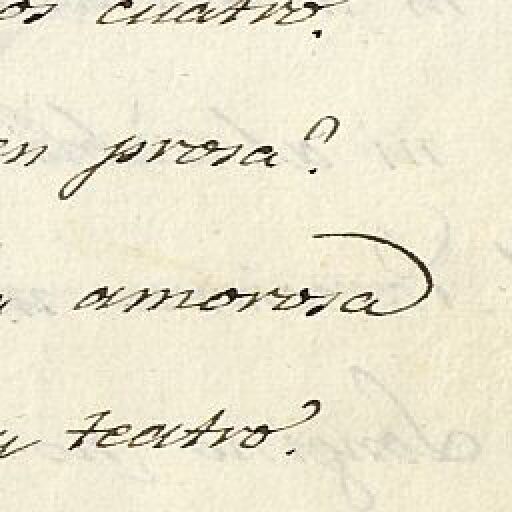 os cuatro.
en prosa?
amorosa
teatro.